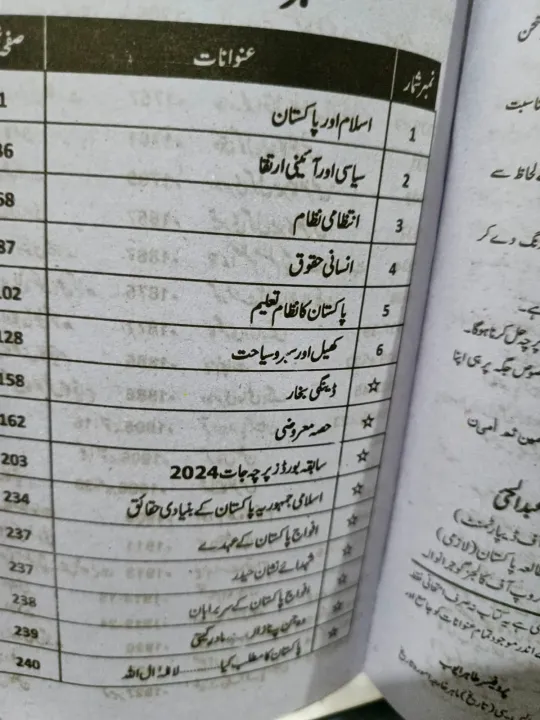 نمبر شمار عنوانات
1 اسلام اور پاکستان 1
2 سیاسی اور آئینی ارتقا 36
3 انتظامی نظام 68
4 انسانی حقوق 87
5 پاکستان کا نظام تعلیم 102
6 کھیل اور سیر و سیاحت 128
☆ ڈینگی بخار 158
☆ حصہ معروضی 162
☆ سابقہ بورڈز پرچہ جات 2024 203
☆ اسلامی جمہوریہ پاکستان کے بنیادی حقائق 234
☆ افواج پاکستان کے عہدے 237
☆ شہدائے نشان حیدر 237
☆ افواج پاکستان کے سربراہان 238
☆ مادر گیتی 239
☆ پاکستان کا مطلب کیا.........لا الہ الا اللہ 240
ناسبت
لحاظ سے
رنگ دے کر
پرچہ حل کرنا ہوگا۔